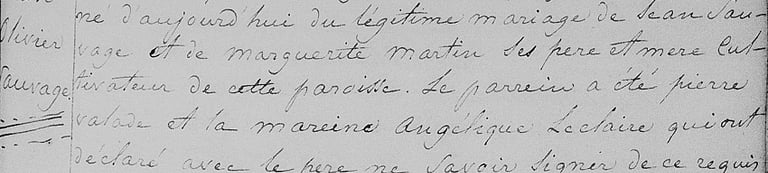 né d'aujourd'hui du légitime mariage de Jean Sau-
Olivier vage et de marguerite martin ses pere et mere Cul-
Sauvage tivateur de cette paroisse. Le parrein a été pierre
valade et la mareine Angélique Leclaire qui ont
déclaré avec le pere ne Savoir Signer de ce requis